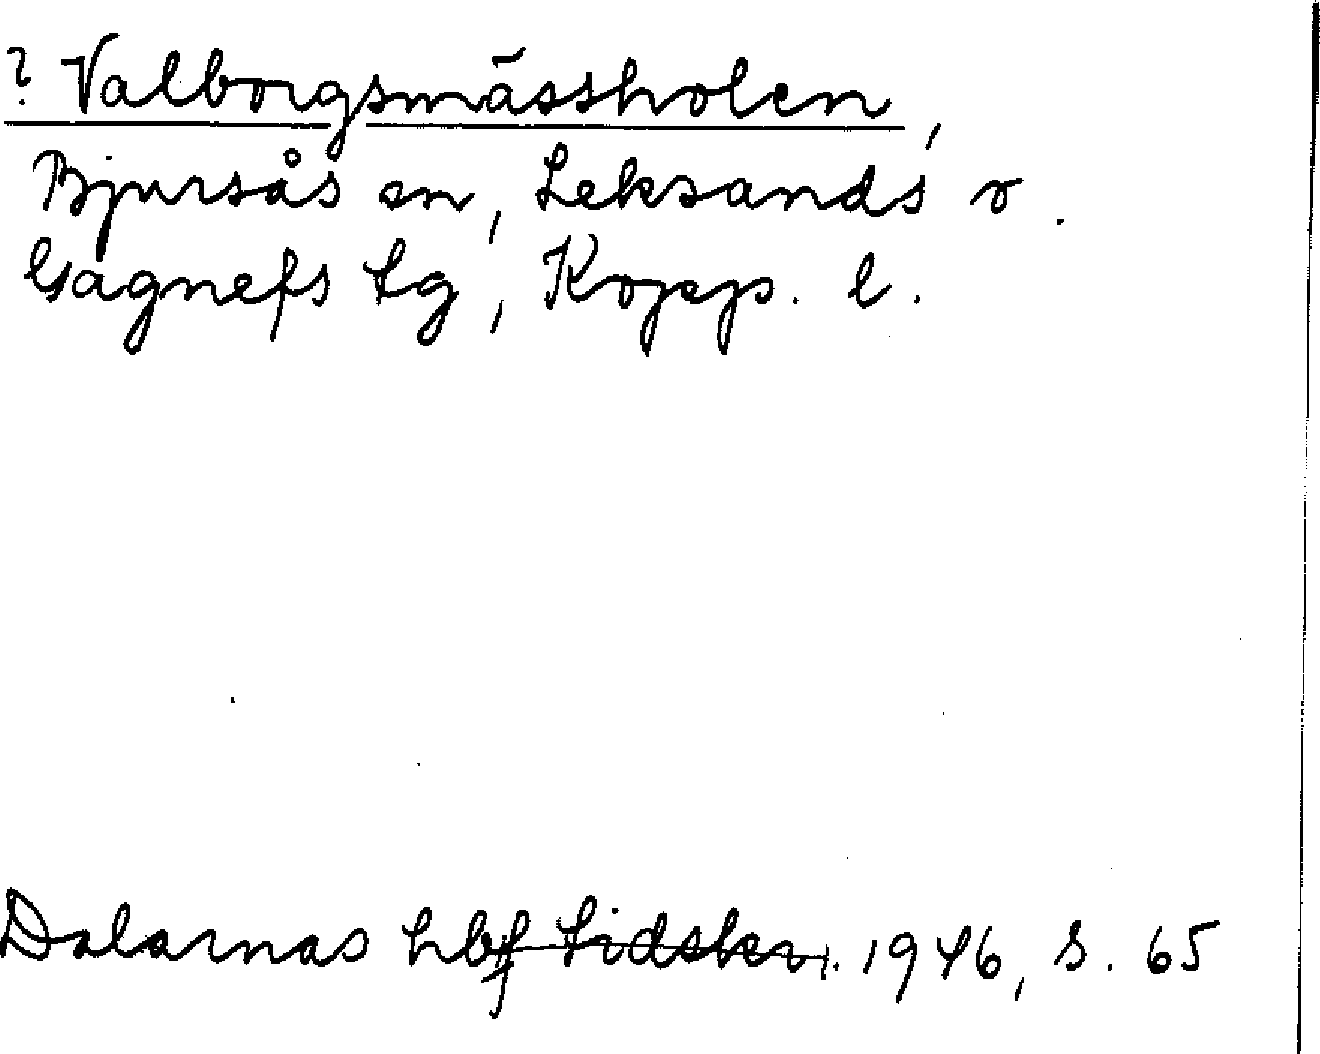 ? Valborgsmässholen,
Bjursås sn, Leksands o.
Gagnefs tg, Kopp. l.
Dalarnas hbf tidskr. 1946, s. 65